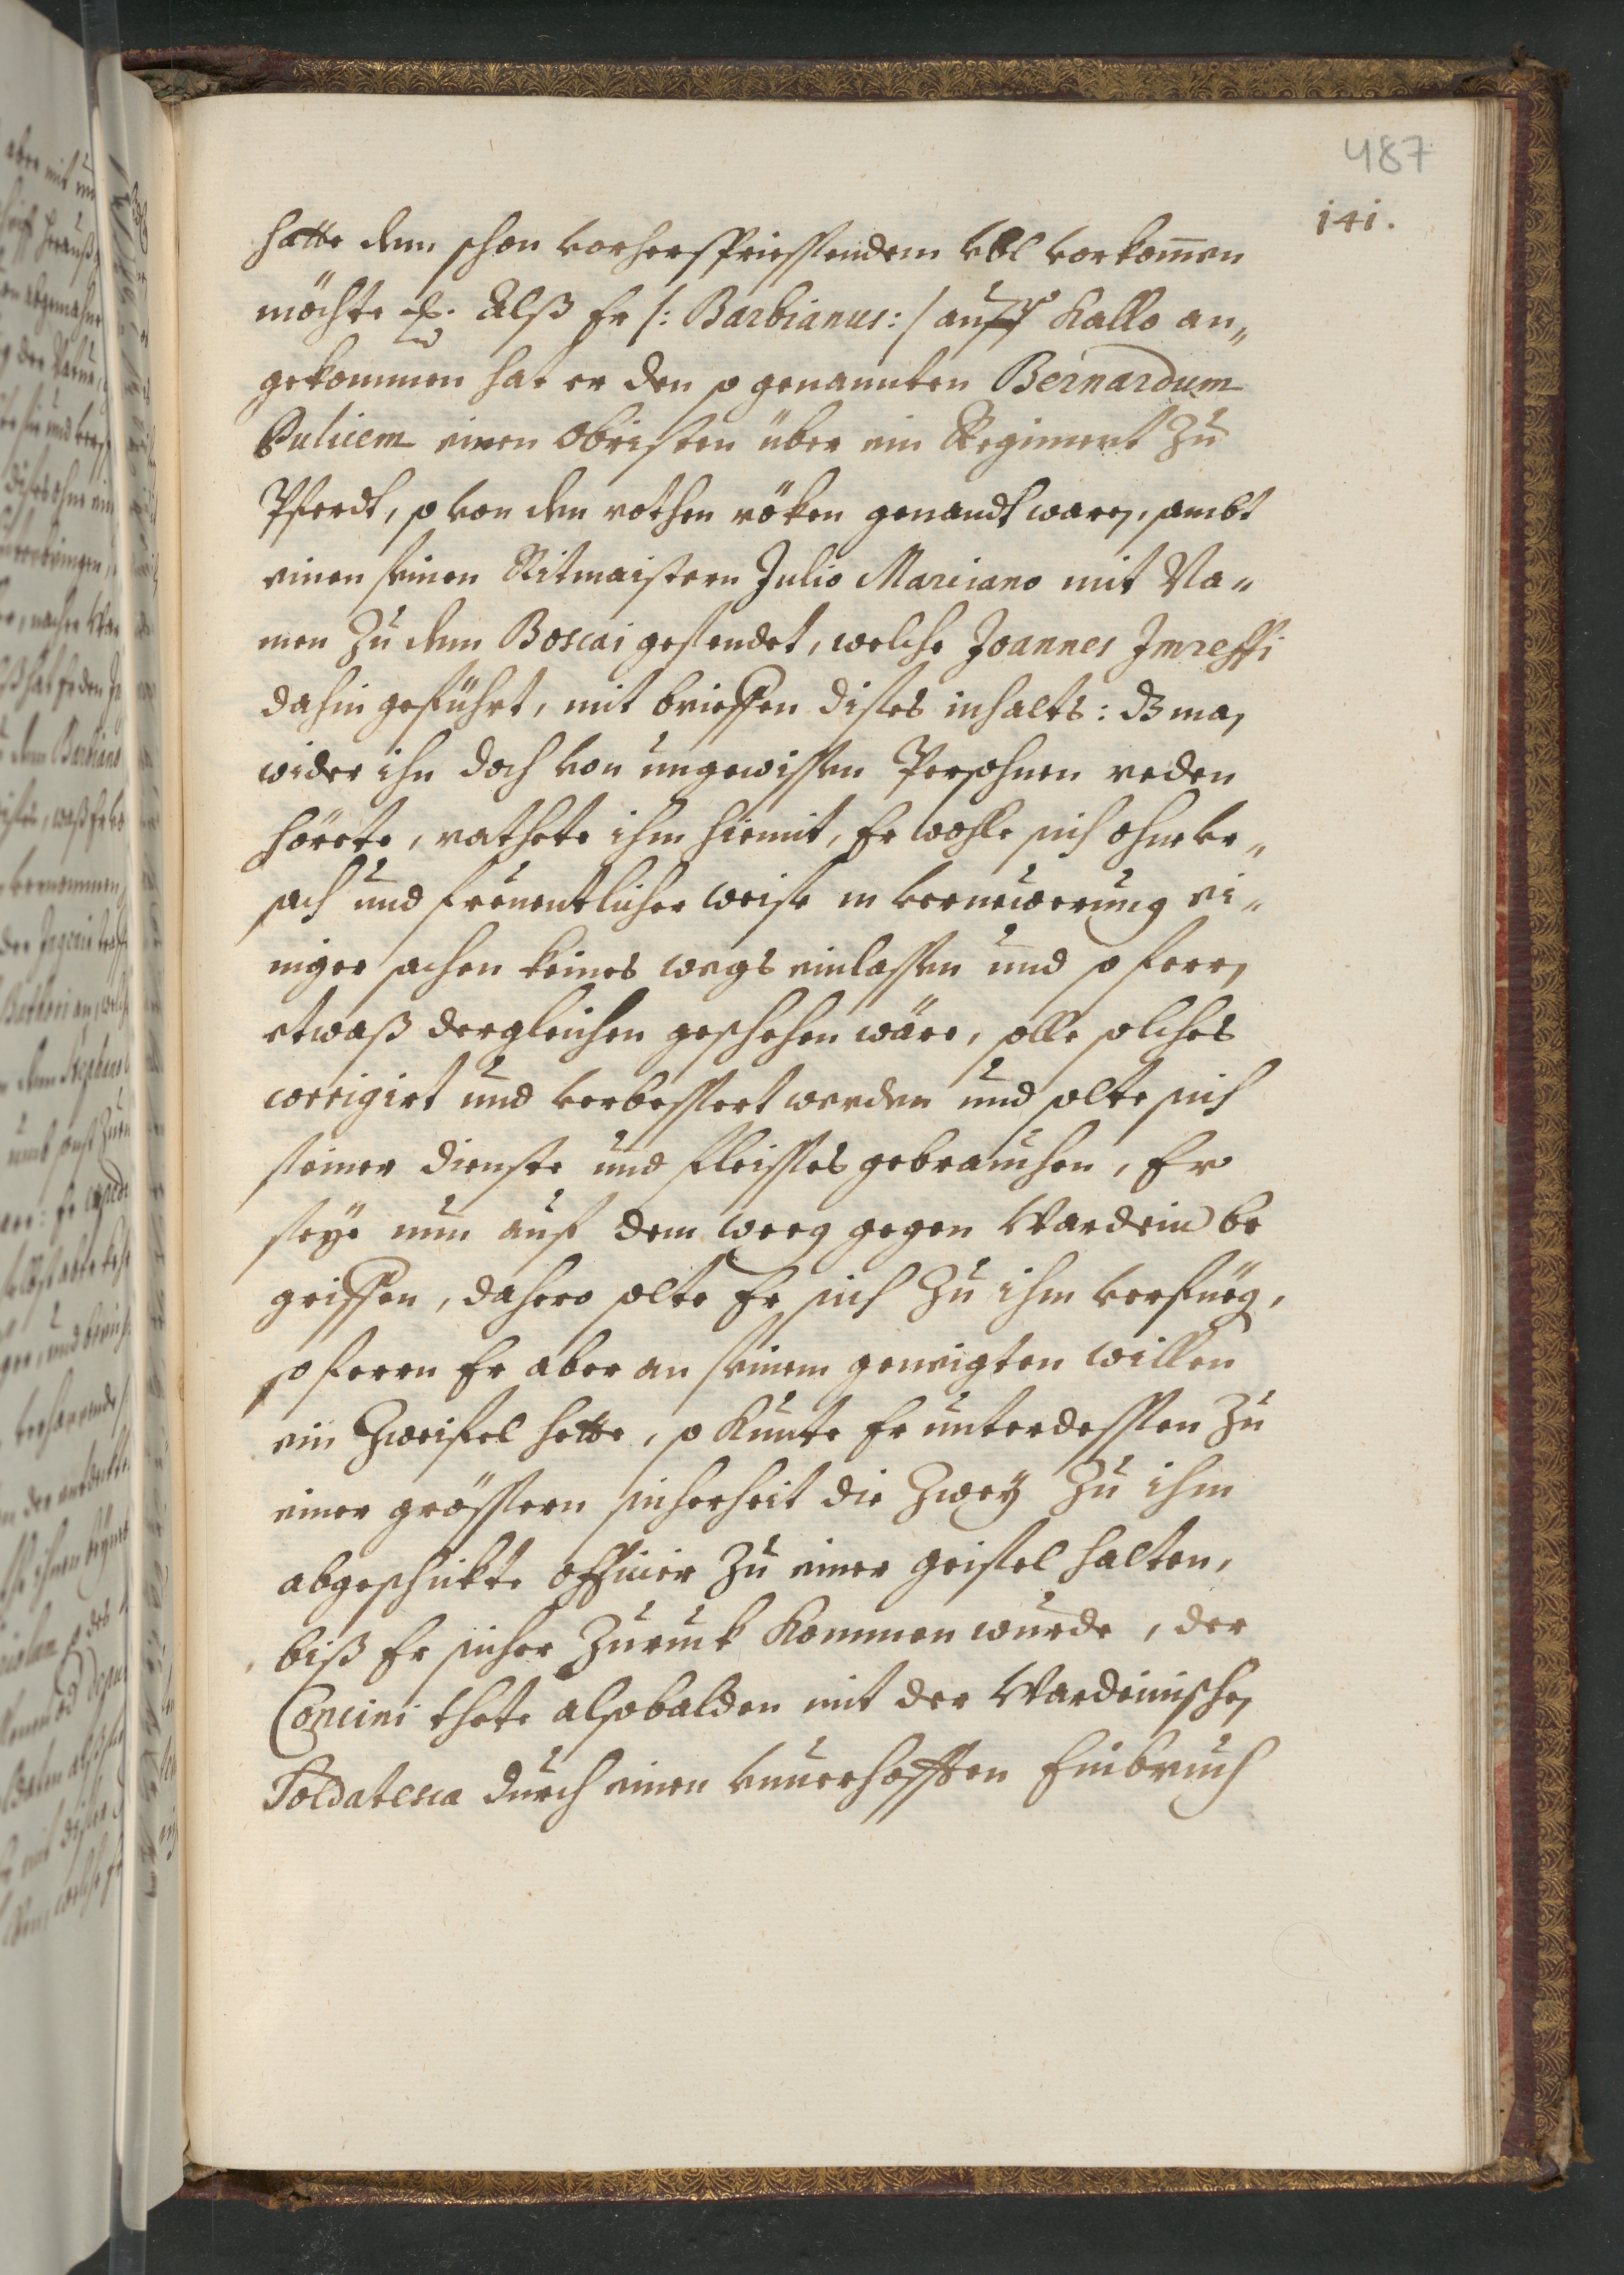 487
141.
hatte dem schon vorherspriessendem vbl vorkom̅en
möchte Alß Er /: Barbianus: / auff Kallo an„
gekommen hat er den so genannten Bernardum
Pulicem einen Obristen über ein Regiment Zu
Pferdt, so von den rothen röken genandt waren, sambt
einen seinen Ritmaistern Julio Marciano mit Na„
men Zu dem Boscai gesendet, welche Joannes Imreffi
dahin geführt, mit brieffen dises inhalts: dz man
wider ihn doch von ungewissen Persohnen reden
hörete, rathete ihm hiemit, Er wohle sich ohne vr„
sach und freuentlicher weise in verneuerung ei„
niger sachen keines wegs einlassen und so fern
etwaß dergleichen geschehen wäre, solle solches
corrigirt und verbessert werden und solte sich
seiner dienste und fleisses gebrauchen, Er
seye nun auf dem weeg gegen Wardein be
griffen, dahero solte Er sich Zu ihm verfueg,
so ferrn Er aber an seinem geneigten willen
ein Zweifel hette, so kunte Er unterdessen Zu
einer grössern sicherheit die Zwey Zu ihm
abgeschikte officier Zu einer geisel halten,
biß Er sicher Zuruck kommen wurde, der
Concini thete alsobalden mit der Wardeinischen
Soldatesca durch einen vnuerhofften Einbruch